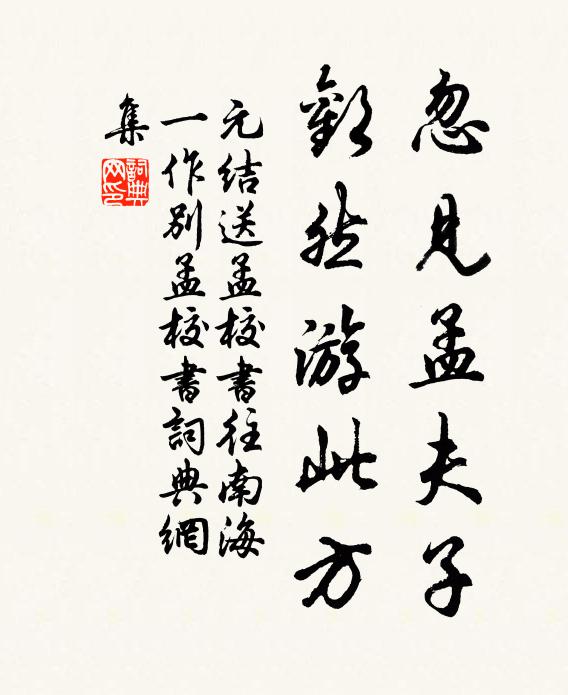 忽見孟夫子
歡然游此方
元结送孟校書往南海
一作別孟校書詞典網
集
詞典網印